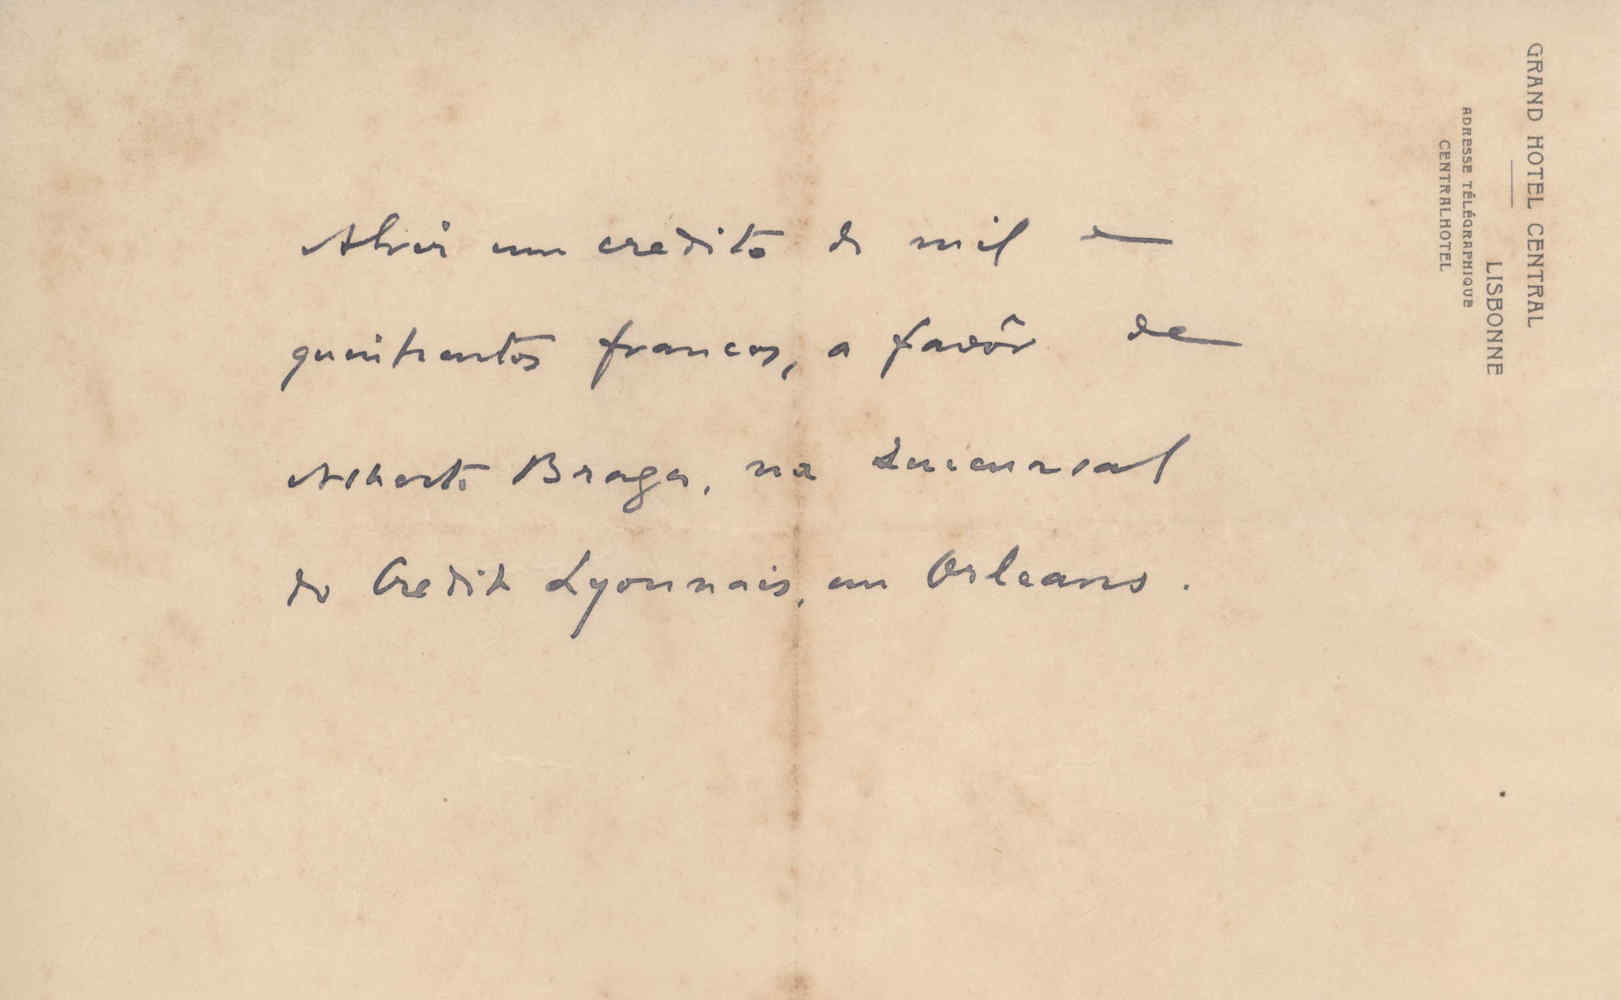 GRAND HOTEL CENTRAL
LISBONNE
ADRESSE TÉLÉGRAPHIQUE
CENTRALHOTEL
Abrir um credito de mil e
quinhentos francos, a favôr de
Alberto Braga, na Sucursal
do Credit Lyonnais, em Orleans.